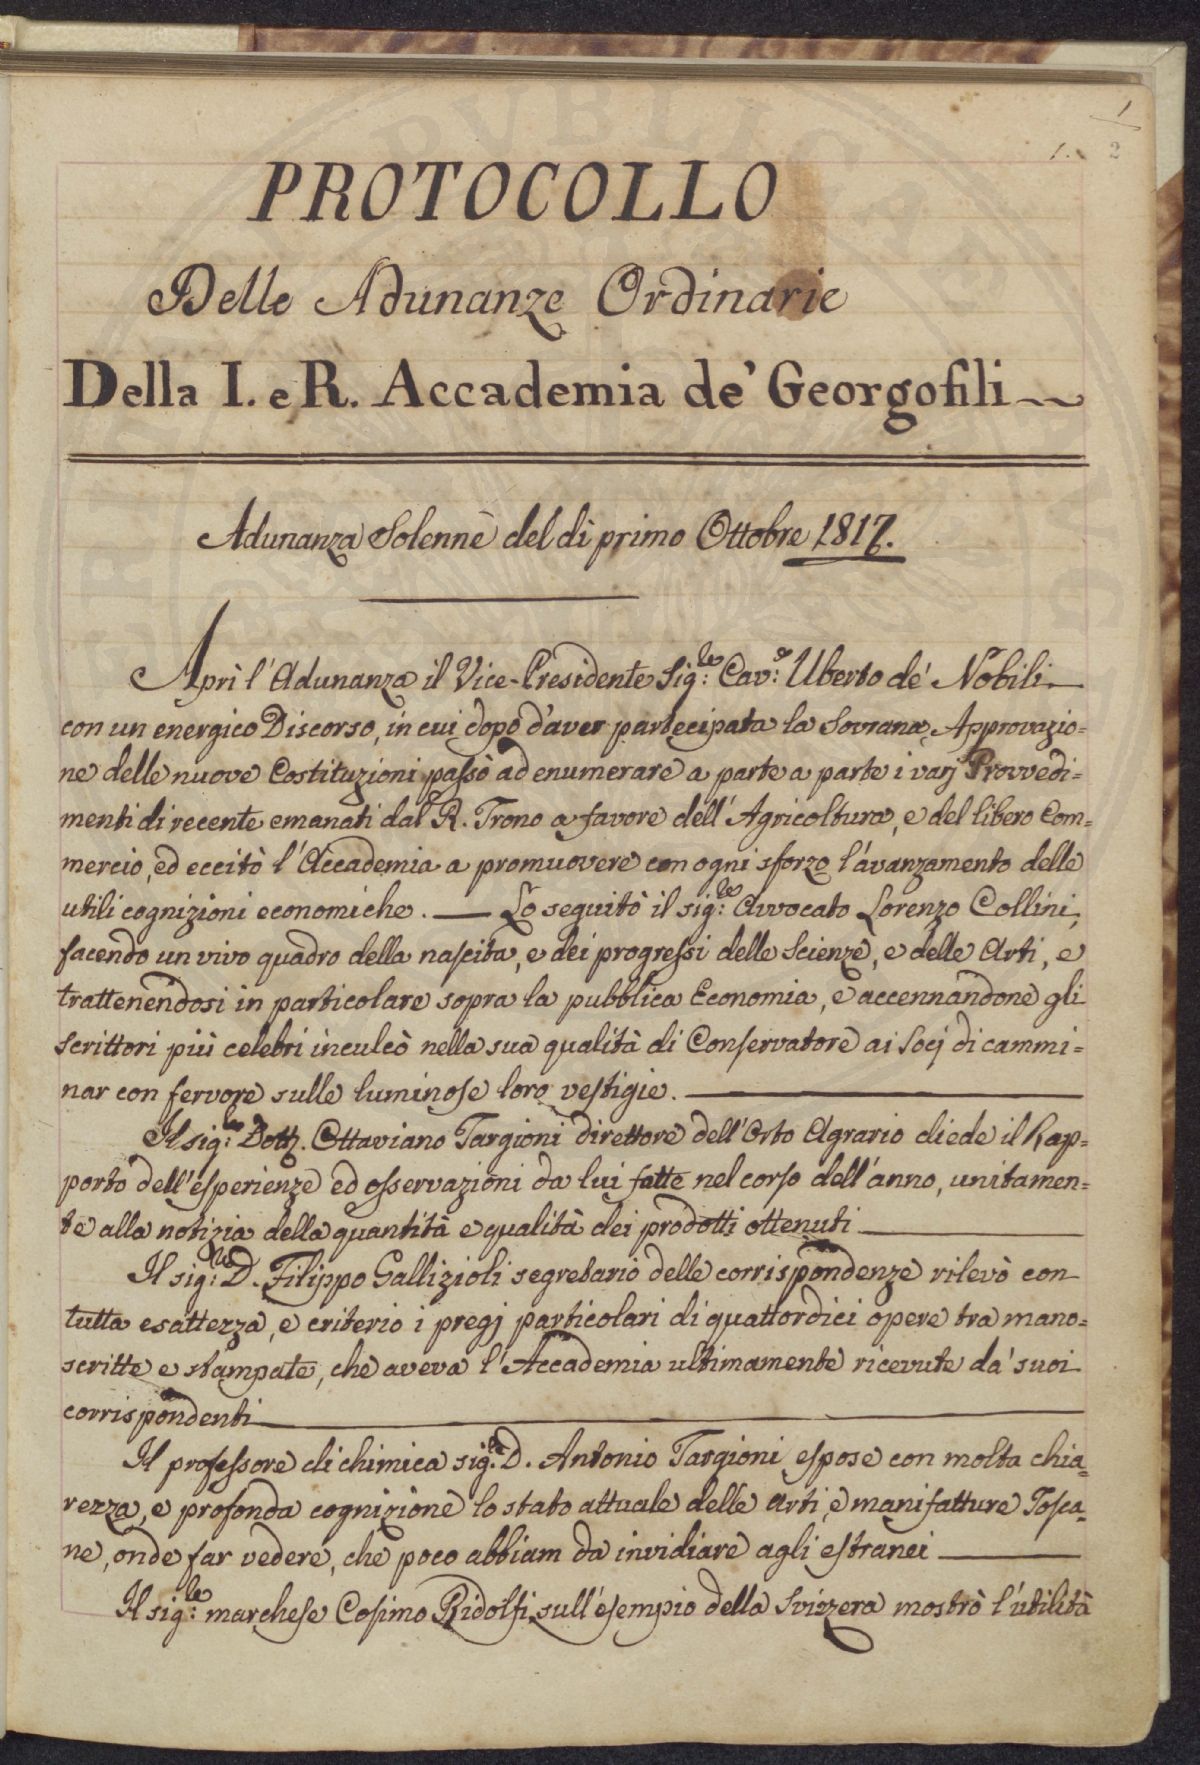 1
1.
2
PROTOCOLLO
Delle Adunanze Ordinarie
Della I. e R. Accademia de' Georgofili
Adunanza Solenne del dì primo Ottobre 1817.
Aprì l'Adunanza il Vice-Presidente Sig:le Cav:e Uberto de' Nobili
con un energico Discorso, in cui dopo d'aver partecipata la Sovrana Approvazio=
ne delle nuove Costituzioni passò ad enumerare a parte a parte i varj Provvedi=
menti di recente emanati dal R. Trono a favore dell'Agricoltura, e del libero Com=
mercio, ed eccitò l'Accademia a promuovere con ogni sforzo l'avanzamento delle
utili cognizioni economiche. — Lo seguitò il sig:le Avvocato Lorenzo Collini,
facendo un vivo quadro della nascita, e dei progressi delle Scienze, e delle Arti, e
trattenendosi in particolare sopra la pubblica Economia, e accennandone gli
scrittori più celebri inculcò nella sua qualità di Conservatore ai Socj di cammi=
nar con fervore sulle luminose loro vestigie.
Il sig:le Dott. Ottaviano Targioni direttore dell'Orto Agrario diede il Rap=
porto dell'esperienze ed osservazioni da lui fatte nel corso dell'anno, unitamen=
te alla notizia della quantità e qualità dei prodotti ottenuti
Il sig:le D. Filippo Gallizioli segretario delle corrispondenze rilevò con
tutta esattezza, e criterio i pregj particolari di quattordici opere tra mano=
scritte e stampate, che aveva l'Accademia ultimamente ricevute da' suoi
corrispondenti
Il professore di chimica sig:le D. Antonio Targioni espose con molta chia=
rezza, e profonda cognizione lo stato attuale delle Arti, e manifatture Tosca=
ne, onde far vedere, che poco abbiam da invidiare agli estranei
Il sig:le marchese Cosimo Ridolfi sull'esempio della Svizzera mostrò l'utilità